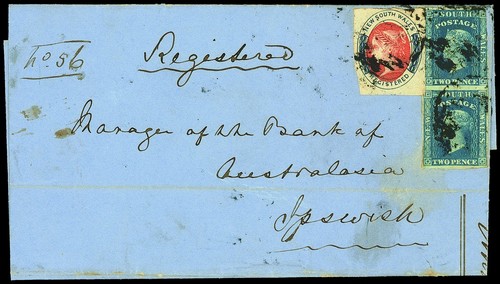 No 56
Registered
NEW SOUTH WALES
REGISTERED
SOUTH
POSTAGE
WALES
TWO PENCE
SOUTH
POSTAGE
NEW
WALES
TWO PENCE
Manager of the Bank of
Australasia
Ipswich